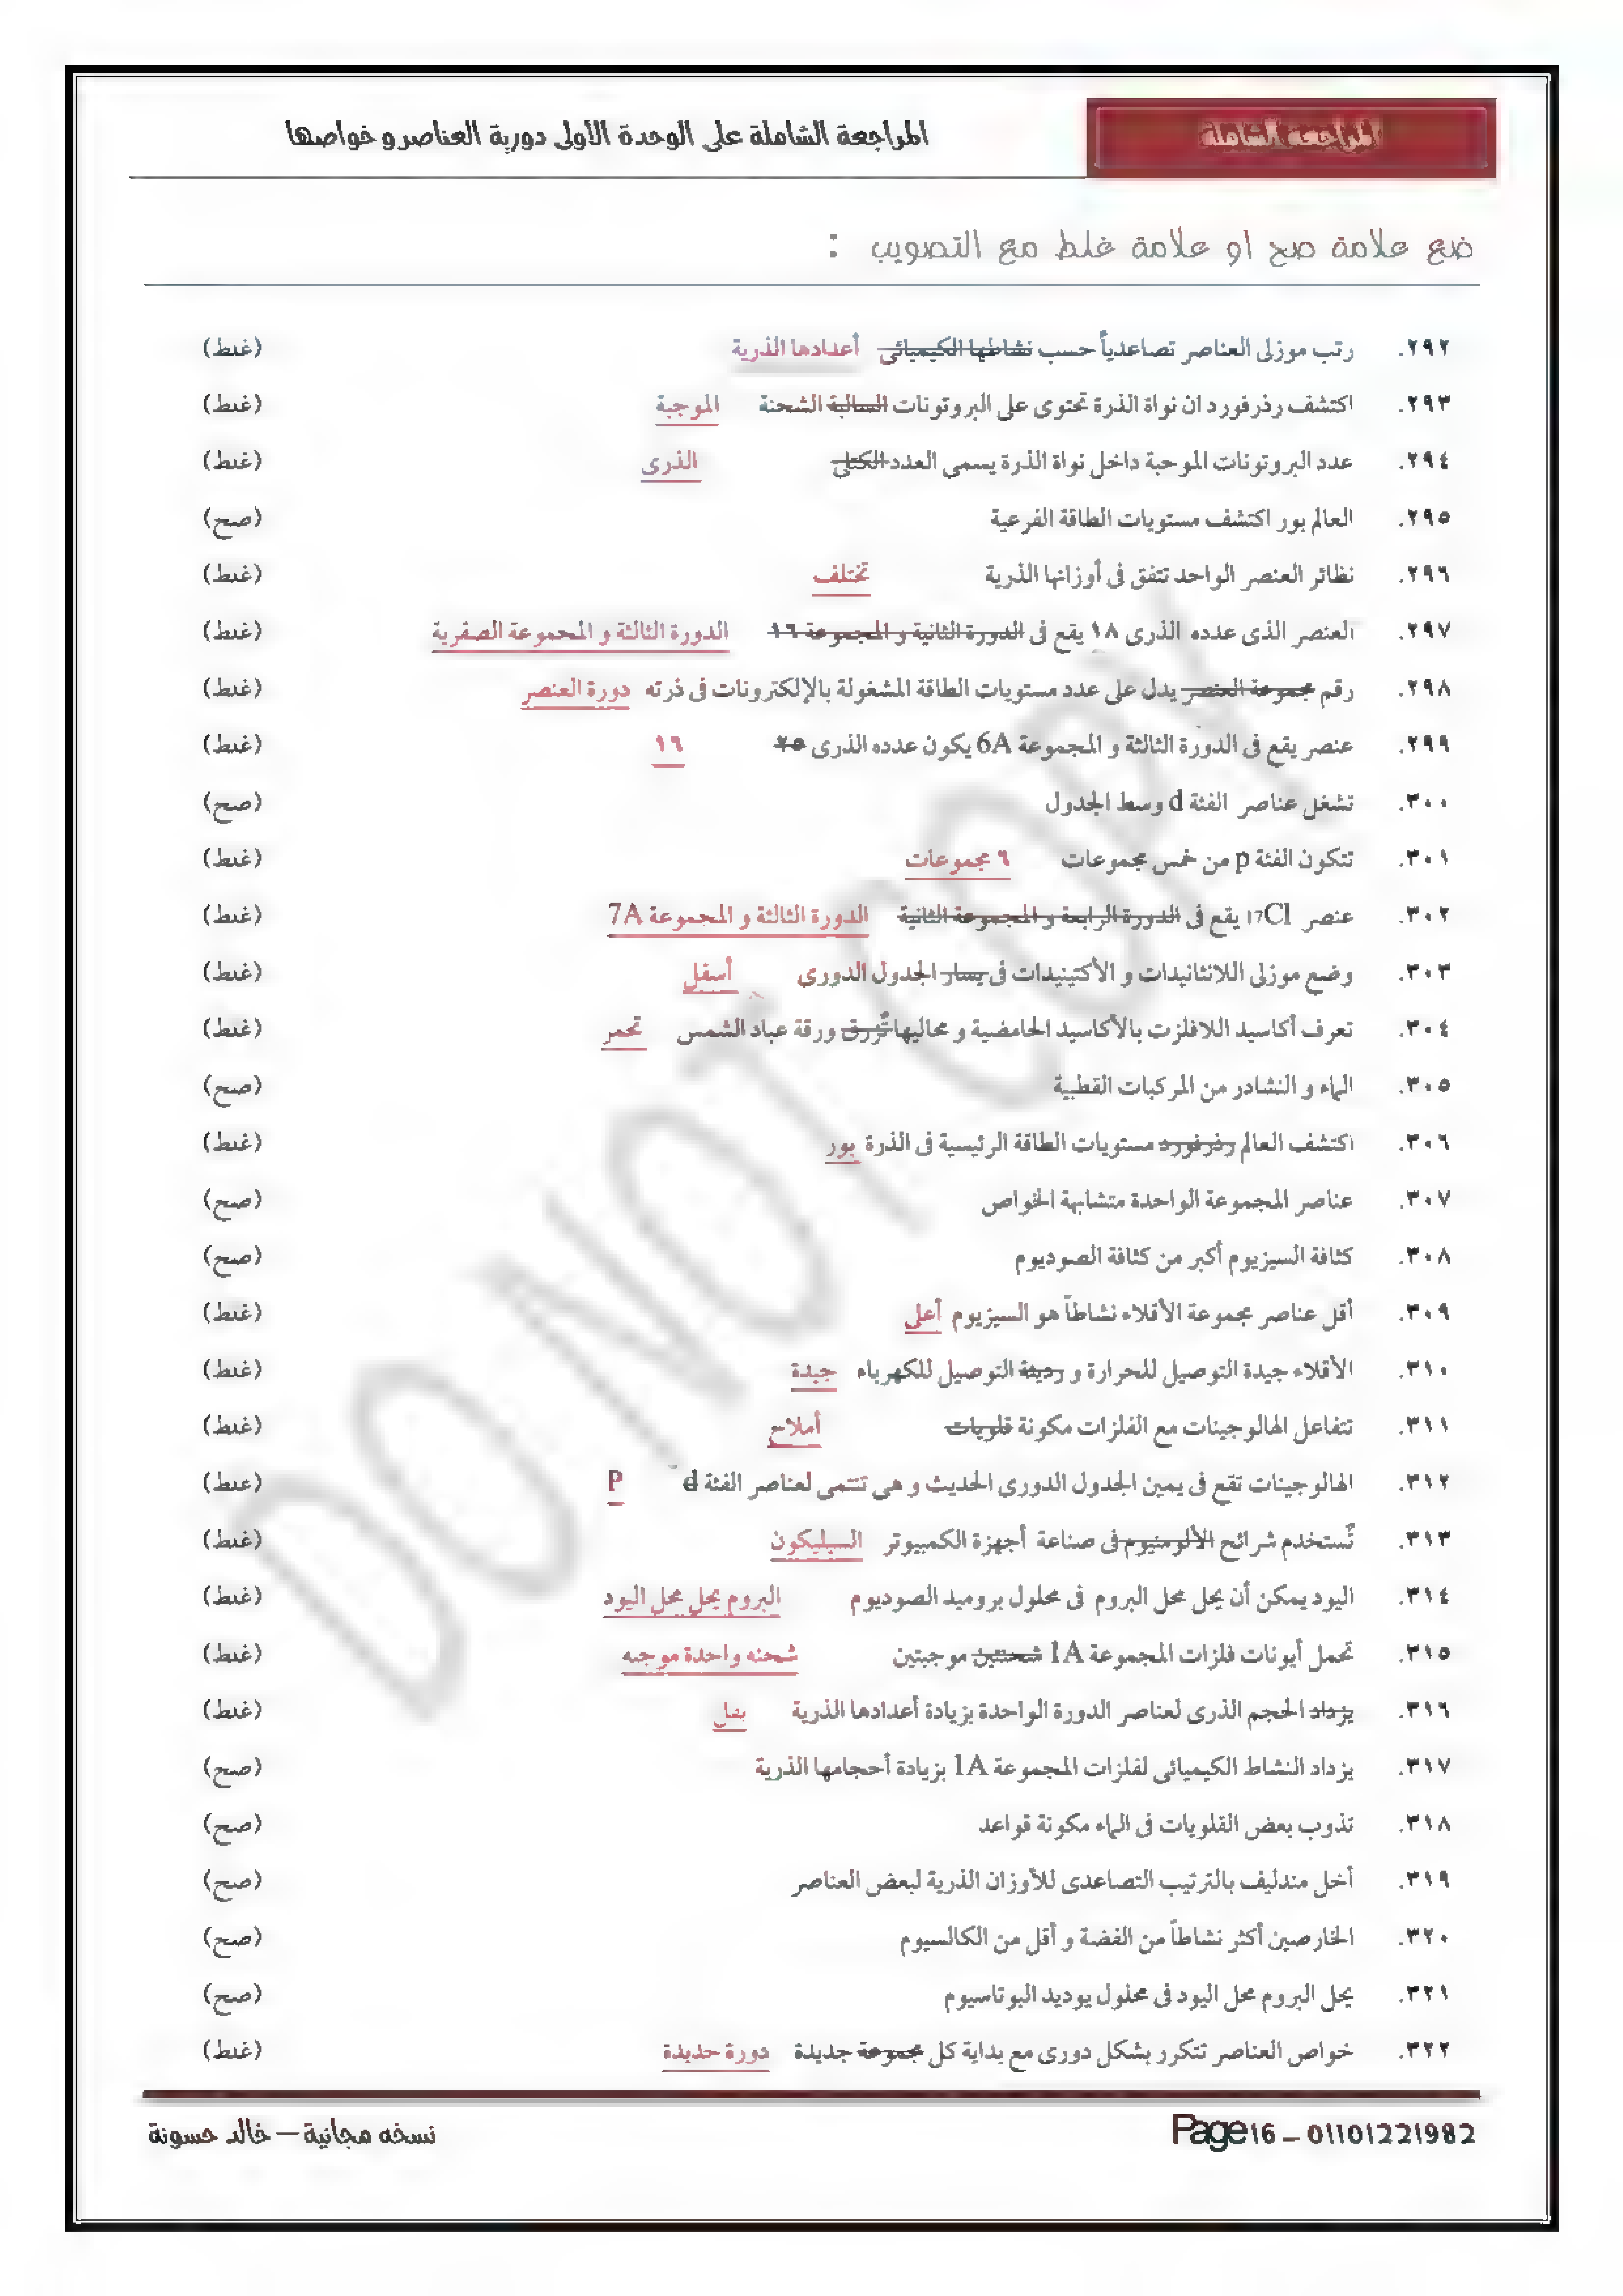 المراجعة الشاملة
المراجعة الشاملة على الوحدة الأولى دورية العناصر و خواصها
ضع علامة صح او علامة غلط مع التصويب :
٢٩٢. رتب موزلى العناصر تصاعدياً حسب نشاطها الكيميائى أعدادها الذرية (غلط)
٢٩٣. اكتشف رذرفورد ان نواة الذرة تحتوى على البروتونات السالبة الشحنة الموجبة (غلط)
٢٩٤. عدد البروتونات الموجبة داخل نواة الذرة يسمى العدد الكتلى الذرى (غلط)
٢٩٥. العالم بور اكتشف مستويات الطاقة الفرعية (صح)
٢٩٦. نظائر العنصر الواحد تتفق فى أوزانها الذرية تختلف (غلط)
٢٩٧. العنصر الذى عدده الذرى ١٨ يقع فى الدورة الثانية و المجموعة ١٦ الدورة الثالثة و المجموعة الصفرية (غلط)
٢٩٨. رقم مجموعة العنصر يدل على عدد مستويات الطاقة المشغولة بالإلكترونات فى ذرته دورة العنصر (غلط)
٢٩٩. عنصر يقع فى الدورة الثالثة و المجموعة 6A يكون عدده الذرى ٢٥ ١٦ (غلط)
٣٠٠. تشغل عناصر الفئة d وسط الجدول (صح)
٣٠١. تتكون الفئة p من خمس مجموعات ٦ مجموعات (غلط)
٣٠٢. عنصر 17Cl يقع فى الدورة الرابعة و المجموعة الثانية الدورة الثالثة و المجموعة 7A (غلط)
٣٠٣. وضع موزلى اللانثانيدات و الأكتينيدات فى يسار الجدول الدورى أسفل (غلط)
٣٠٤. تعرف أكاسيد اللافلزت بالأكاسيد الحامضية و محاليها تُزرق ورقة عباد الشمس تحمر (غلط)
٣٠٥. الماء و النشادر من المركبات القطبية (صح)
٣٠٦. اكتشف العالم رذرفورد مستويات الطاقة الرئيسية فى الذرة بور (غلط)
٣٠٧. عناصر المجموعة الواحدة متشابهة الخواص (صح)
٣٠٨. كثافة السيزيوم أكبر من كثافة الصوديوم (صح)
٣٠٩. أقل عناصر مجموعة الأقلاء نشاطاً هو السيزيوم أعلى (غلط)
٣١٠. الأقلاء جيدة التوصيل للحرارة و رديئة التوصيل للكهرباء جيدة (غلط)
٣١١. تتفاعل الهالوجينات مع الفلزات مكونة قلويات أملاح (غلط)
٣١٢. الهالوجينات تقع فى يمين الجدول الدورى الحديث و هى تنتمى لعناصر الفئة d P (غلط)
٣١٣. تُستخدم شرائح الألومنيوم فى صناعة أجهزة الكمبيوتر السيليكون (غلط)
٣١٤. اليود يمكن أن يحل محل البروم فى محلول بروميد الصوديوم البروم يحل محل اليود (غلط)
٣١٥. تحمل أيونات فلزات المجموعة 1A شحنتين موجبتين شحنه واحدة موجبه (غلط)
٣١٦. يزداد الحجم الذرى لعناصر الدورة الواحدة بزيادة أعدادها الذرية يقل (غلط)
٣١٧. يزداد النشاط الكيميائى لفلزات المجموعة 1A بزيادة أحجامها الذرية (صح)
٣١٨. تذوب بعض القلويات فى الماء مكونة قواعد (صح)
٣١٩. أخل مندليف بالترتيب التصاعدى للأوزان الذرية لبعض العناصر (صح)
٣٢٠. الخارصين أكثر نشاطاً من الفضة و أقل من الكالسيوم (صح)
٣٢١. يحل البروم محل اليود فى محلول يوديد البوتاسيوم (صح)
٣٢٢. خواص العناصر تتكرر بشكل دورى مع بداية كل مجموعة جديدة دورة جديدة (غلط)
Page 16 – 01101221982
نسخه مجانية – خالد حسونة
DO NOT COPY